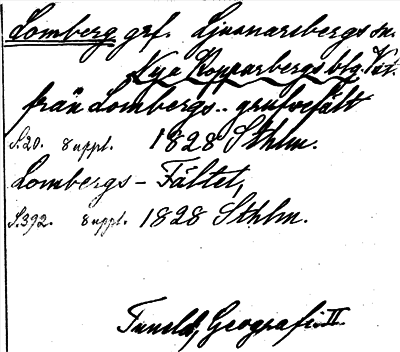 Lomberg grf. Ljusnarsbergs sn.
Nya Kopparbergs blg. Väst.
från Lombergs-- grufvefält
S.20. 8 uppl. 1828 Sthlm.
Lombergs - Fältet,
S.392. 8 uppl. 1828 Sthlm.
Tuneld, Geografi. II.